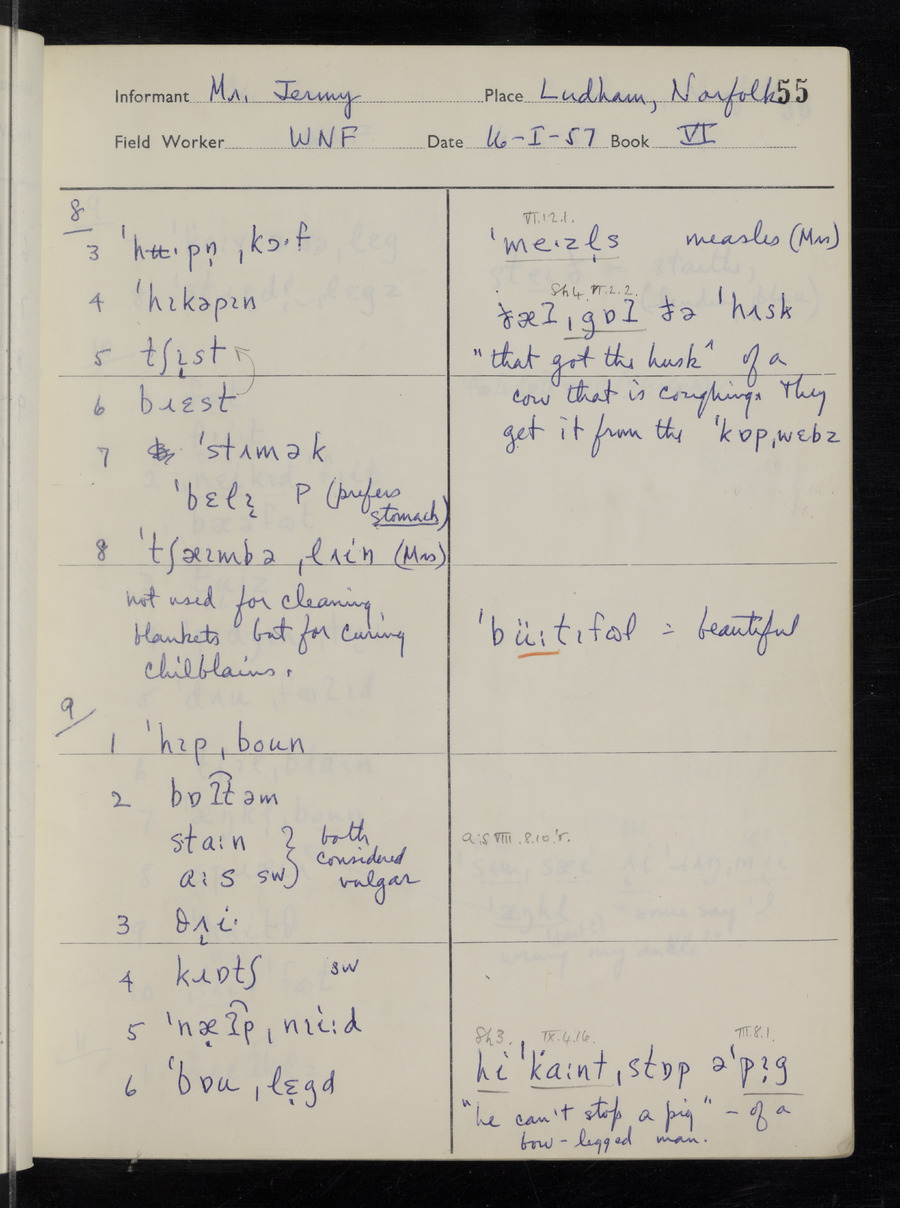 Informant Mr. Jermy Place Ludham, Norfolk 55
Field Worker WNF Date 16-I-57 Book VI
8
3 ˌkɔ·f
4 ˈhɪkəpɪn
5 tʃɪst
6 bɹɛst
7 ˈstʌmək
P (prefers
stomach)
8 (Mrs)
not used for cleaning
blankets but for curing
chilblains.
9
1 ˈhɪpˌboun
2
staːn } both
considered
ɑːs sw) vulgar
3
4 kɹɒtʃ sw
5
6 ˈbɒuˌlɛgd
VI.12.1.
measles (Mrs)
Sh4. VI.2.2.
"that got the husk" of a
cow that is coughing. They
get it from the ˈkɒpˌwɛbz
= beautiful
ɑːs VIII.8.10.r.
Sh3. IX.4.16. III.8.1.
hi ˈkaːntˌstɒp əˈpɪg
"he can't stop a pig" - of a
bow-legged man.